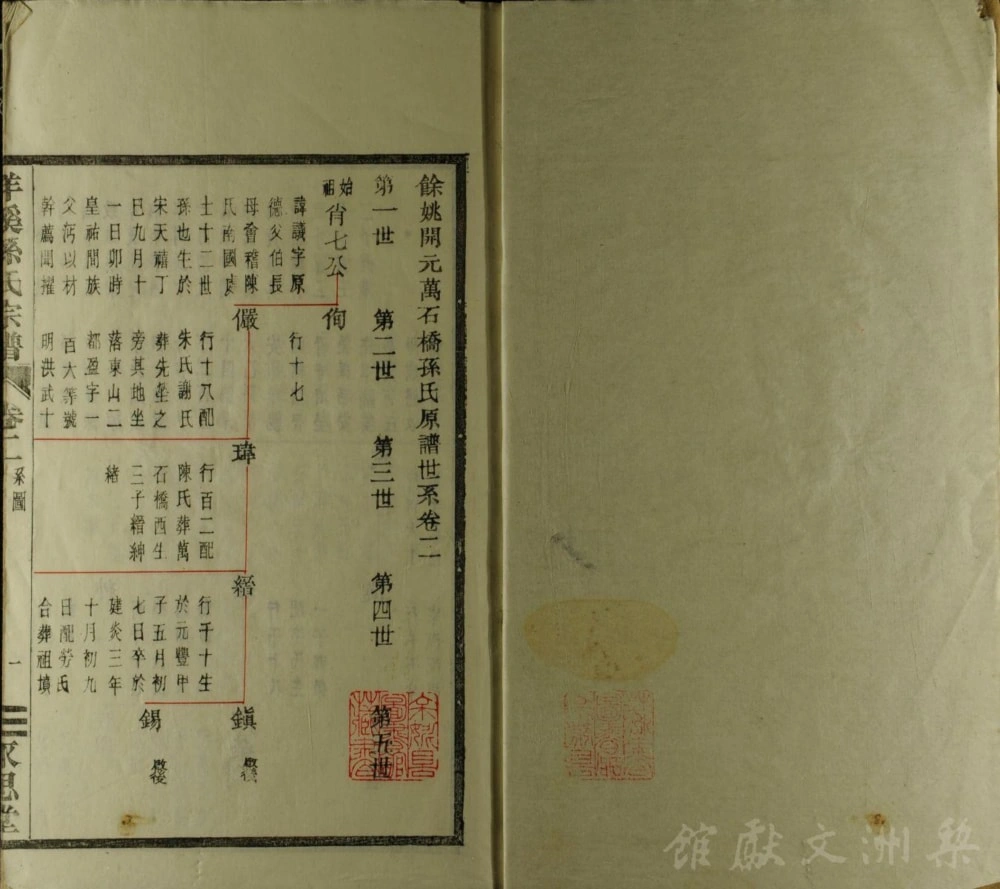 餘姚開元萬石橋孫氏原譜世系卷二
第一世
第二世
第三世
第四世
第五世
始祖
肖七公
諱議字原
德父伯長
母會稽陳
氏南國
士十二世
孫也生於
宋天禧丁
巳九月十
一日卯時
皇祐間族
父沔以材
幹薦聞擢
恂
行十七
儼
行十八配
朱氏謝氏
葬先塋之
旁其地坐
落東山二
都盈字一
百大等號
明洪武十
瑋
行百二配
陳氏葬萬
石橋西生
三子縉紳
緒
縉
行千十生
於元豐甲
子五月初
七日卒於
建炎三年
十月初九
日配勞氏
合葬祖墳
鎮
錫
孫氏宗譜
卷二
系圖
一
永思堂
梨洲文獻館